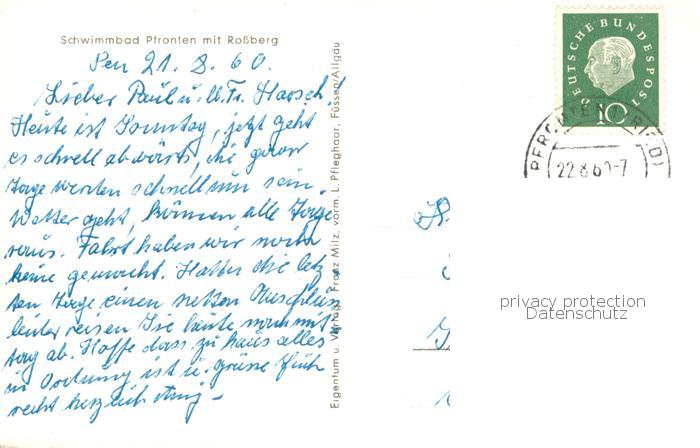 Schwimmbad Pfronten mit Roßberg
Den 21. 8. 60.
Lieber Paul u. Fr.
Heute ist Sonntag, jetzt geht
es schnell abwärts, die paar
Tage werden schnell um sein.
Wetter geht, können alle Tage
raus. Fahrt haben wir noch
keine gemacht. Hatten die letz
ten Tage einen netten Anschluß
leider reisen Sie heute nammit
tag ab. Hoffe dass zu haus alles
in Ordnung ist u. grüsse Euch
recht herzlich
Eigentum u. Verlag: Franz Milz, vorm. L. Pfleghaar, Füssen/Allgäu
DEUTSCHE BUNDESPOST
10
22.8.60-7
privacy protection
Datenschutz